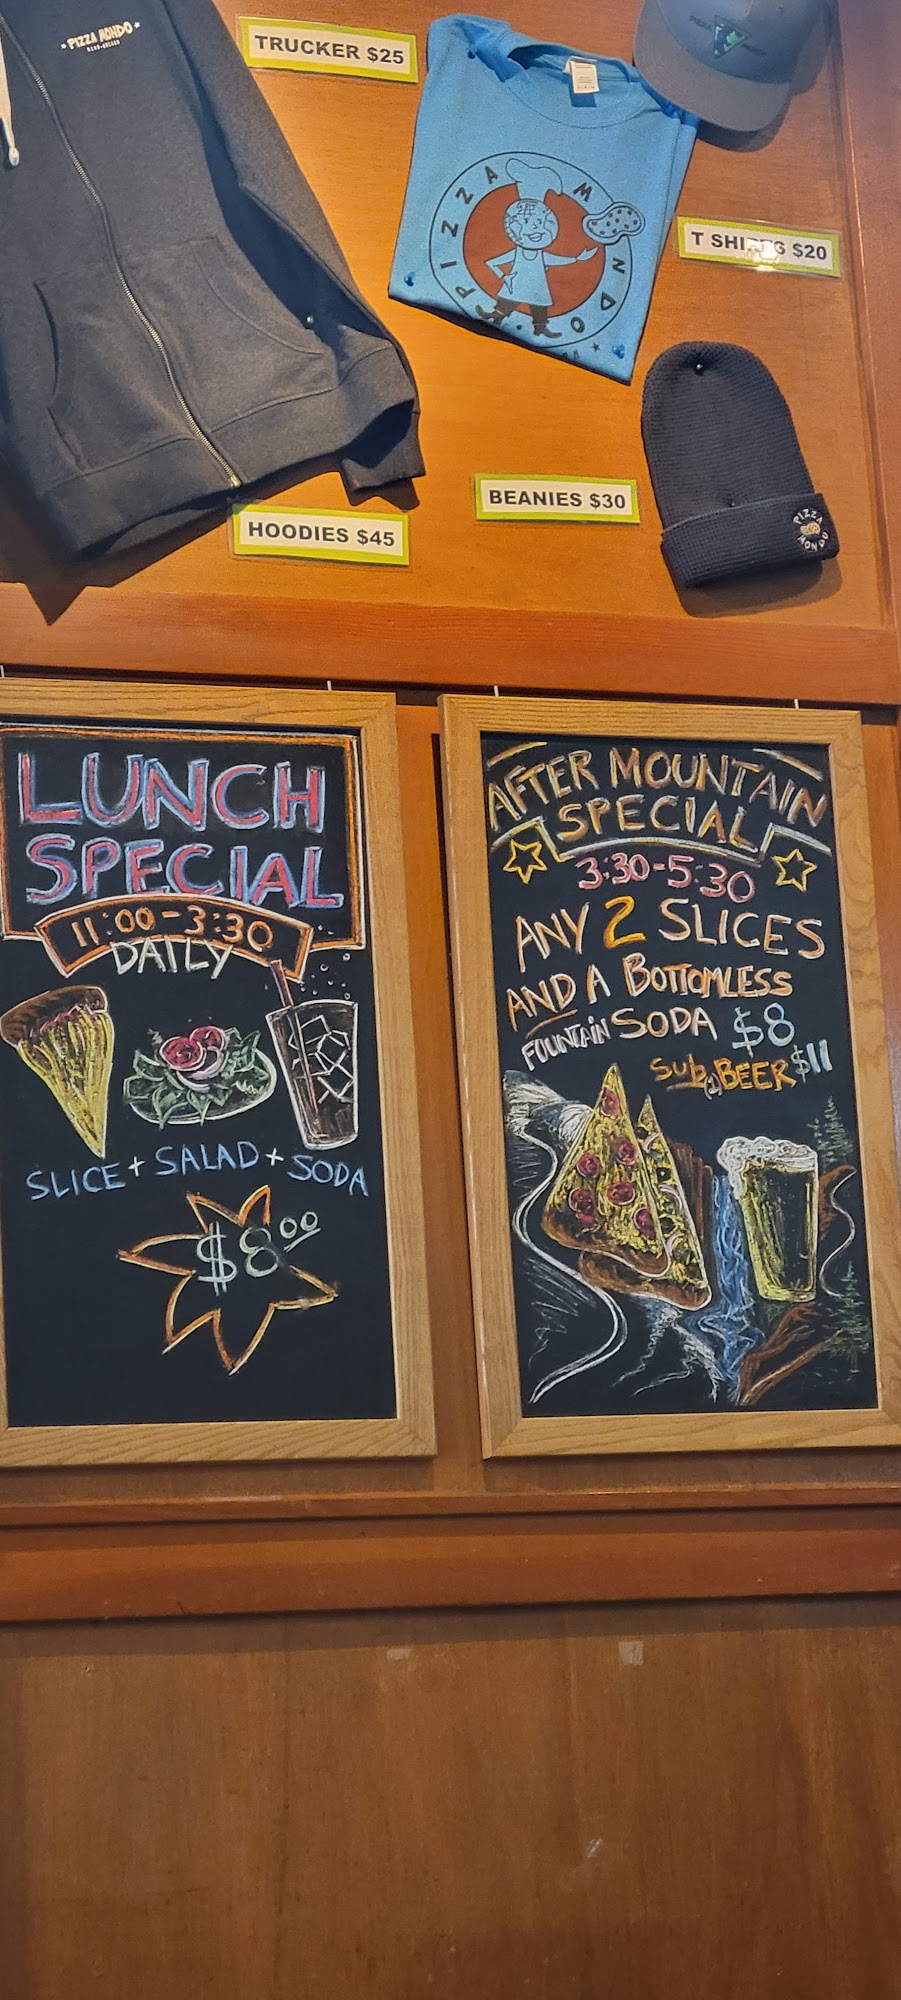 PIZZA MONDO
TRUCKER $25
PIZZA MONDO
T SHIRTS $20
BEANIES $30
HOODIES $45
PIZZA
MONDO
LUNCH
SPECIAL
11:00-3:30
DAILY
SLICE + SALAD + SODA
$8.00
AFTER MOUNTAIN
SPECIAL
3:30-5:30
ANY 2 SLICES
AND A BOTTOMLESS
FOUNTAIN SODA $8
SUB (1) BEER $11